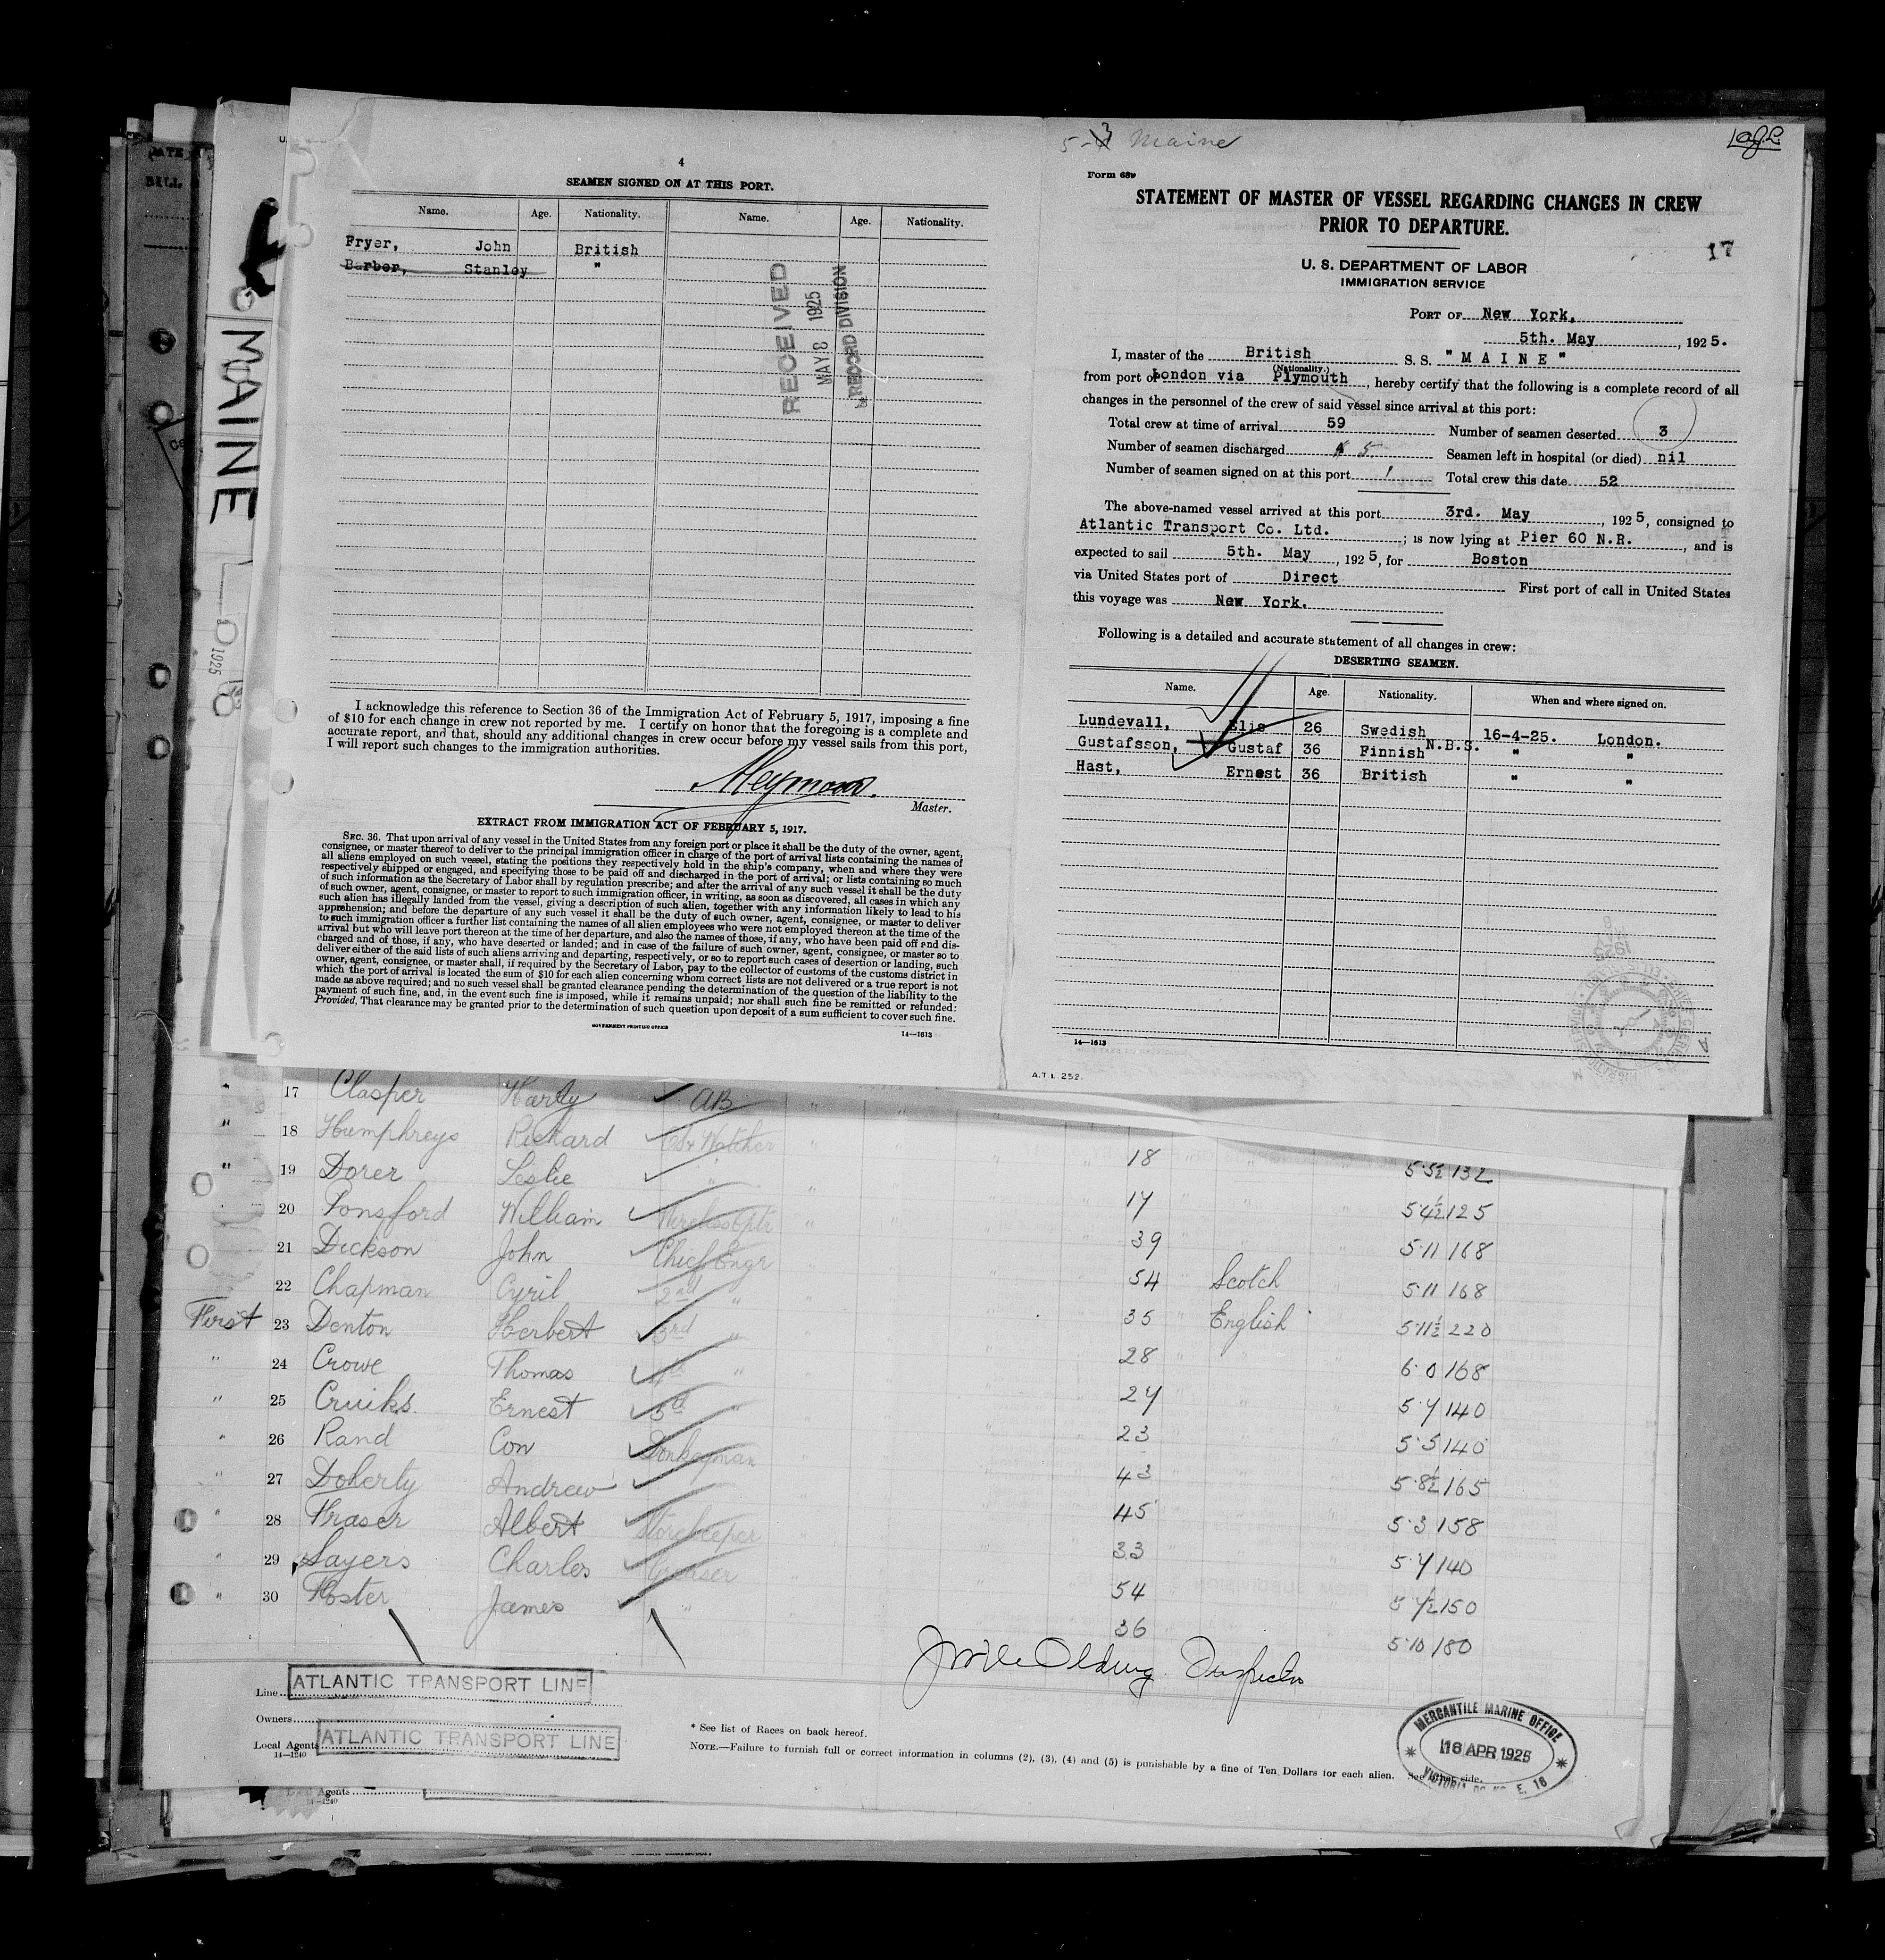 4
SEAMEN SIGNED ON AT THIS PORT.
Name. Age. Nationality. Name. Age. Nationality.
Fryer, John British
Barber, Stanley "
RECEIVED
MAY 8 1925
RECORD DIVISION
I acknowledge this reference to Section 36 of the Immigration Act of February 5, 1917, imposing a fine
of $10 for each change in crew not reported by me. I certify on honor that the foregoing is a complete and
accurate report, and that, should any additional changes in crew occur before my vessel sails from this port,
I will report such changes to the immigration authorities.
Master.
EXTRACT FROM IMMIGRATION ACT OF FEBRUARY 5, 1917.
SEC. 36. That upon arrival of any vessel in the United States from any foreign port or place it shall be the duty of the owner, agent,
consignee, or master thereof to deliver to the principal immigration officer in charge of the port of arrival lists containing the names of
all aliens employed on such vessel, stating the positions they respectively hold in the ship's company, when and where they were
respectively shipped or engaged, and specifying those to be paid off and discharged in the port of arrival; or lists containing so much
of such information as the Secretary of Labor shall by regulation prescribe; and after the arrival of any such vessel it shall be the duty
of such owner, agent, consignee, or master to report to such immigration officer, in writing, as soon as discovered, all cases in which any
such alien has illegally landed from the vessel, giving a description of such alien, together with any information likely to lead to his
apprehension; and before the departure of any such vessel it shall be the duty of such owner, agent, consignee, or master to deliver
to such immigration officer a further list containing the names of all alien employees who were not employed thereon at the time of the
arrival but who will leave port thereon at the time of her departure, and also the names of those, if any, who have been paid off and dis-
charged and of those, if any, who have deserted or landed; and in case of the failure of such owner, agent, consignee, or master so to
deliver either of the said lists of such aliens arriving and departing, respectively, or so to report such cases of desertion or landing, such
owner, agent, consignee, or master shall, if required by the Secretary of Labor, pay to the collector of customs of the customs district in
which the port of arrival is located the sum of $10 for each alien concerning whom correct lists are not delivered or a true report is not
made as above required; and no such vessel shall be granted clearance pending the determination of the question of the liability to the
payment of such fine, and, in the event such fine is imposed, while it remains unpaid; nor shall such fine be remitted or refunded:
Provided, That clearance may be granted prior to the determination of such question upon deposit of a sum sufficient to cover such fine.
GOVERNMENT PRINTING OFFICE
14—1613
5-3 Maine
Form 689
STATEMENT OF MASTER OF VESSEL REGARDING CHANGES IN CREW
PRIOR TO DEPARTURE.
17
U. S. DEPARTMENT OF LABOR
IMMIGRATION SERVICE
PORT OF New York,
5th. May, 1925.
I, master of the British S. S. "MAINE"
(Nationality.)
from port of London via Plymouth, hereby certify that the following is a complete record of all
changes in the personnel of the crew of said vessel since arrival at this port:
Total crew at time of arrival 59 Number of seamen deserted 3
Number of seamen discharged 5 Seamen left in hospital (or died) nil
Number of seamen signed on at this port 1 Total crew this date 52
The above-named vessel arrived at this port 3rd. May, 1925, consigned to
Atlantic Transport Co. Ltd.; is now lying at Pier 60 N.R., and is
expected to sail 5th. May, 1925, for Boston
via United States port of Direct First port of call in United States
this voyage was New York.
Following is a detailed and accurate statement of all changes in crew:
DESERTING SEAMEN.
Name. Age. Nationality. When and where signed on.
Lundevall, Elis 26 Swedish 16-4-25. London.
Gustafsson, Gustaf 36 Finnish N.B.S. " "
Hast, Ernest 36 British " "
14—1613
A.T.L. 252.
MAINE
1925
17 Clasper Harty AB
18 Humphreys Richard Watcher 18 5·5½ 132
19 Dorer Leslie " 17 5·4½ 125
20 Ponsford William Wireless Optr 39 5·11 168
21 Dickson John Chief Engr 54 Scotch 5·11 168
22 Chapman Cyril 2nd " 35 English 5·11½ 220
First 23 Denton Herbert 3rd " 28 6·0 168
" 24 Crowe Thomas " 27 5·7 140
" 25 Cruiks. Ernest 5th " 23 5·5 140
" 26 Rand Con Donkeyman 43 5·8½ 165
" 27 Doherty Andrew 45 5·3 158
" 28 Fraser Albert Storekeeper 33 5·7 140
" 29 Sayers Charles Greaser 54 5·7½ 150
" 30 Foster James " 36 5·10 180
Inspector
Line ATLANTIC TRANSPORT LINE
Owners
Local Agents ATLANTIC TRANSPORT LINE
14—1240
* See list of Races on back hereof.
NOTE.—Failure to furnish full or correct information in columns (2), (3), (4) and (5) is punishable by a fine of Ten Dollars for each alien. See other side.
MERCANTILE MARINE OFFICE
16 APR 1925
E. 16
Local Agents
14—1240